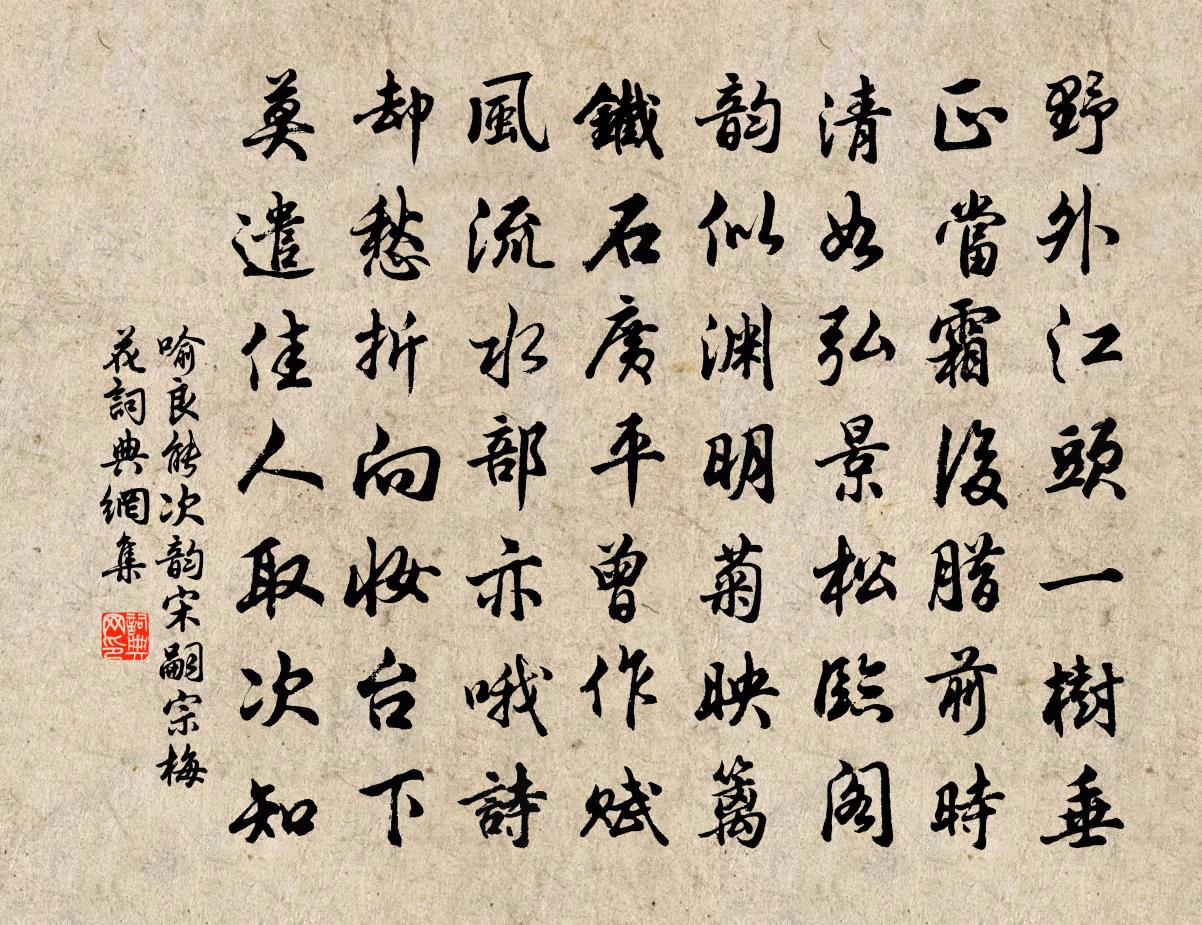 野外江頭一樹垂
正當霜後腊前時
清如弘景松臨閣
韵似渊明菊映篱
鐵石廣平曾作赋
風流水部亦哦詩
却愁折向妆台下
莫遣佳人取次知
喻良能次韵宋嗣宗梅
花詞典網集
詞典
网印